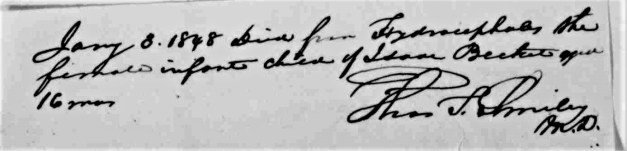 Jany 3. 1848 Died from Hydrocephalus the
female infante child of Isaac Becket aged
16 mos
Thos T. Smiley
M.D.